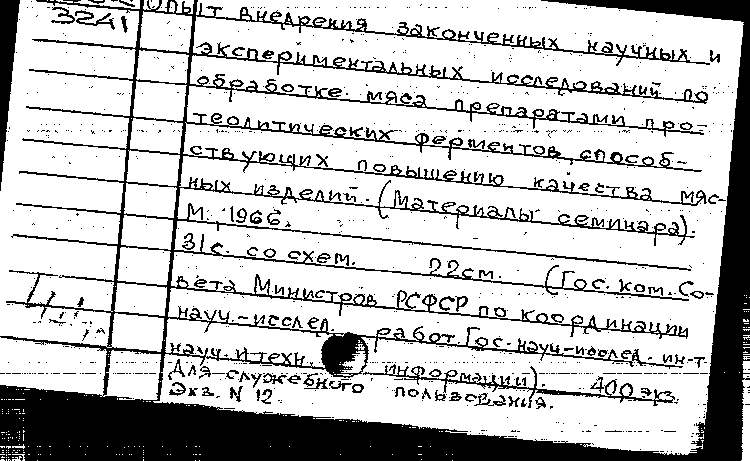 3241
Опыт внедрения законченных научных и
экспериментальных исследований по
обработке мяса препаратами про-
теолитических ферментов, способ-
ствующих повышению качества мяс-
ных изделий. (Материалы семинара).
М., 1966.
31с. со схем. 22см. (Гос. ком. Со-
вета Министров РСФСР по координации
науч.-исслед. работ. Гос. науч-исслед. ин-т
науч. и техн. информации). 400 экз.
Для служебного пользования.
Экз. N 12.